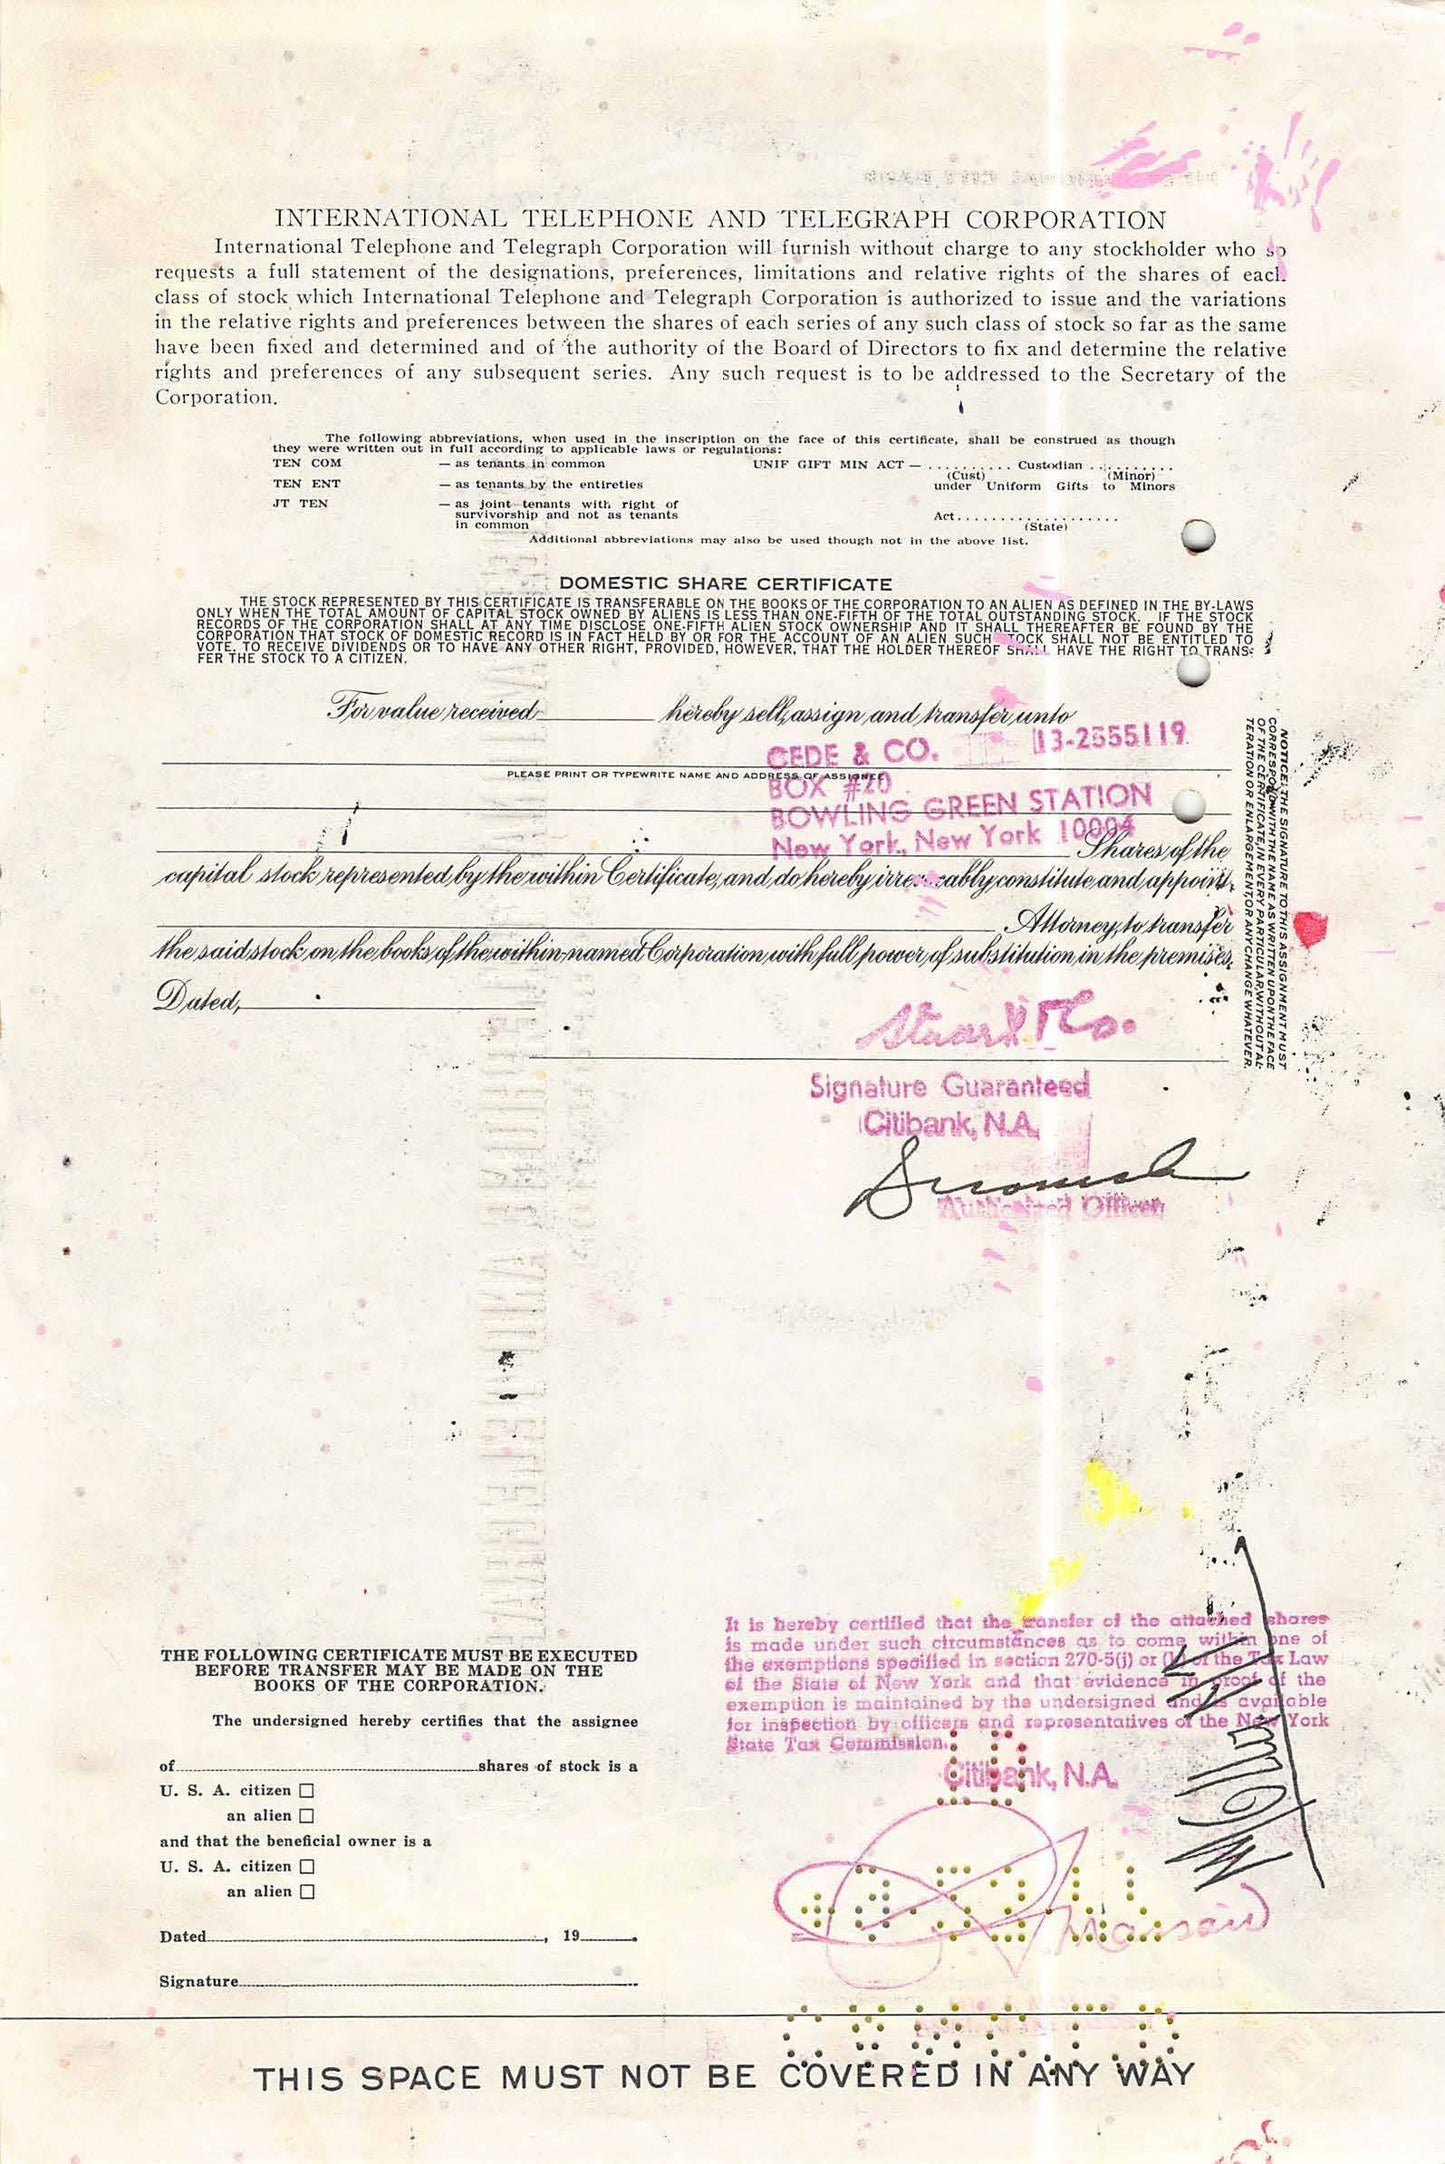 INTERNATIONAL TELEPHONE AND TELEGRAPH CORPORATION
International Telephone and Telegraph Corporation will furnish without charge to any stockholder who so
requests a full statement of the designations, preferences, limitations and relative rights of the shares of each
class of stock which International Telephone and Telegraph Corporation is authorized to issue and the variations
in the relative rights and preferences between the shares of each series of any such class of stock so far as the same
have been fixed and determined and of the authority of the Board of Directors to fix and determine the relative
rights and preferences of any subsequent series. Any such request is to be addressed to the Secretary of the
Corporation.
The following abbreviations, when used in the inscription on the face of this certificate, shall be construed as though
they were written out in full according to applicable laws or regulations:
TEN COM — as tenants in common UNIF GIFT MIN ACT — .......... Custodian ..........
(Cust) (Minor)
TEN ENT — as tenants by the entireties under Uniform Gifts to Minors
JT TEN — as joint tenants with right of
survivorship and not as tenants Act....................
in common (State)
Additional abbreviations may also be used though not in the above list.
DOMESTIC SHARE CERTIFICATE
THE STOCK REPRESENTED BY THIS CERTIFICATE IS TRANSFERABLE ON THE BOOKS OF THE CORPORATION TO AN ALIEN AS DEFINED IN THE BY-LAWS
ONLY WHEN THE TOTAL AMOUNT OF CAPITAL STOCK OWNED BY ALIENS IS LESS THAN ONE-FIFTH OF THE TOTAL OUTSTANDING STOCK. IF THE STOCK
RECORDS OF THE CORPORATION SHALL AT ANY TIME DISCLOSE ONE-FIFTH ALIEN STOCK OWNERSHIP AND IT SHALL THEREAFTER BE FOUND BY THE
CORPORATION THAT STOCK OF DOMESTIC RECORD IS IN FACT HELD BY OR FOR THE ACCOUNT OF AN ALIEN SUCH STOCK SHALL NOT BE ENTITLED TO
VOTE, TO RECEIVE DIVIDENDS OR TO HAVE ANY OTHER RIGHT, PROVIDED, HOWEVER, THAT THE HOLDER THEREOF SHALL HAVE THE RIGHT TO TRANS-
FER THE STOCK TO A CITIZEN.
For value received hereby sell, assign and transfer unto
CEDE & CO. 13-2555119
PLEASE PRINT OR TYPEWRITE NAME AND ADDRESS OF ASSIGNEE
BOX #20
BOWLING GREEN STATION
New York, New York 10004
Shares of the
capital stock represented by the within Certificate, and do hereby irrevocably constitute and appoint
Attorney to transfer
the said stock on the books of the within-named Corporation with full power of substitution in the premises.
Dated,
NOTICE: THE SIGNATURE TO THIS ASSIGNMENT MUST
CORRESPOND WITH THE NAME AS WRITTEN UPON THE FACE
OF THE CERTIFICATE, IN EVERY PARTICULAR, WITHOUT AL-
TERATION OR ENLARGEMENT, OR ANY CHANGE WHATEVER.
Signature Guaranteed
Citibank, N.A.
Authorized Officer
It is hereby certified that the transfer of the attached shares
is made under such circumstances as to come within one of
the exemptions specified in section 270-5(i) or of the Tax Law
of the State of New York and that evidence in proof of the
exemption is maintained by the undersigned and is available
for inspection by officers and representatives of the New York
State Tax Commission.
Citibank, N.A.
THE FOLLOWING CERTIFICATE MUST BE EXECUTED
BEFORE TRANSFER MAY BE MADE ON THE
BOOKS OF THE CORPORATION.
The undersigned hereby certifies that the assignee
of shares of stock is a
U. S. A. citizen ☐
an alien ☐
and that the beneficial owner is a
U. S. A. citizen ☐
an alien ☐
Dated , 19 .
Signature
THIS SPACE MUST NOT BE COVERED IN ANY WAY